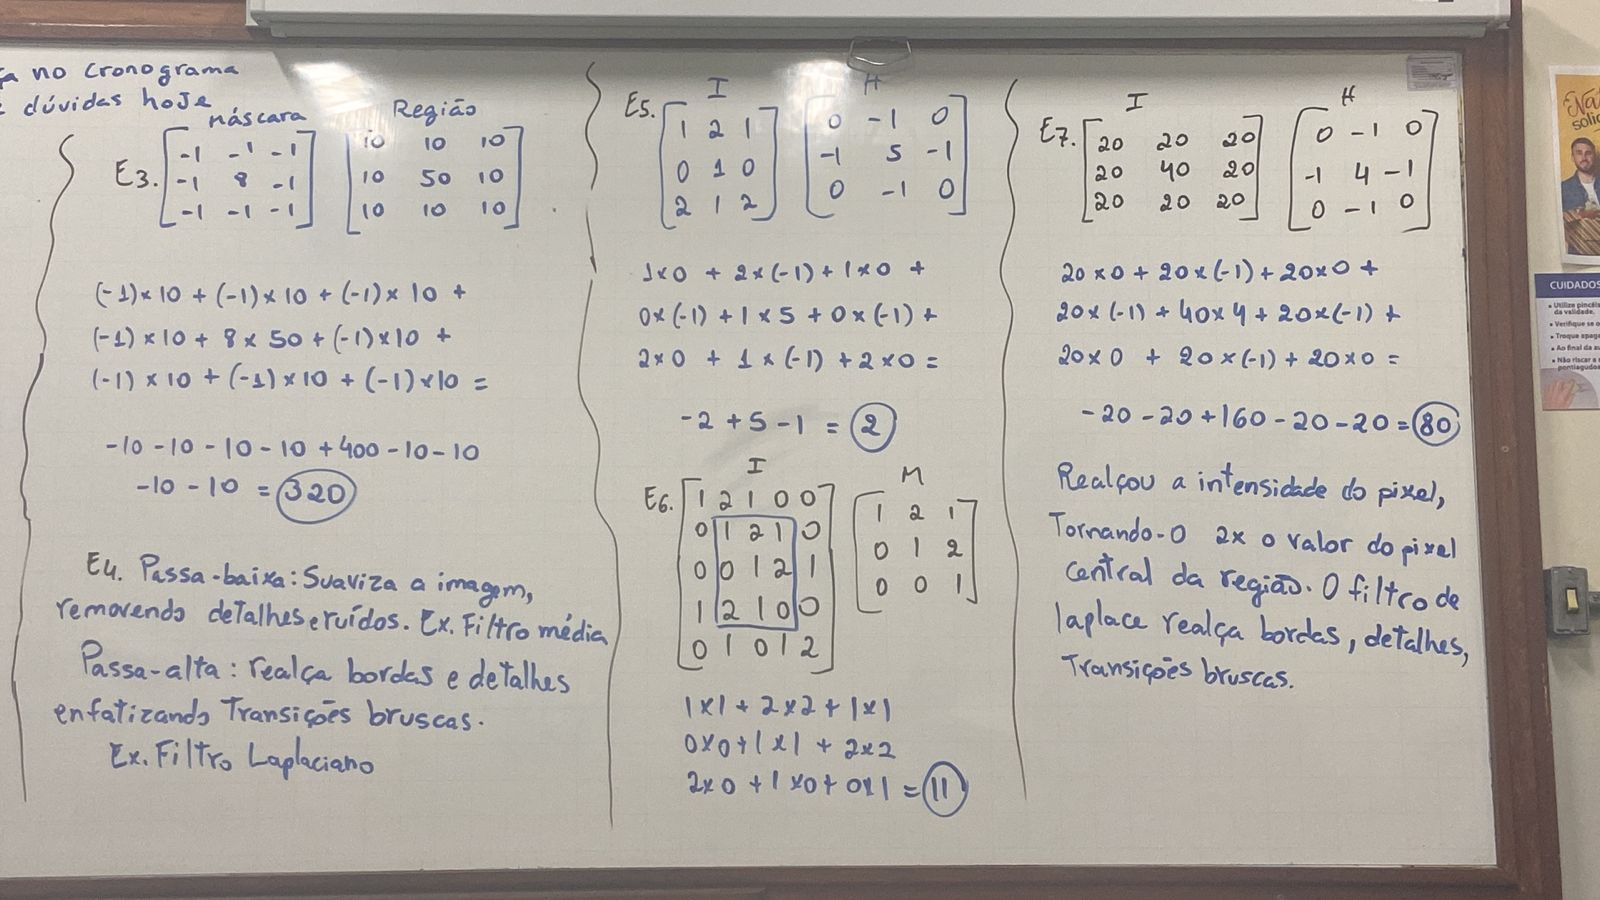 no cronograma
dúvidas hoje
máscara Região
E3. -1 -1 -1 10 10 10
-1 8 -1 10 50 10
-1 -1 -1 10 10 10
(-1)x10 + (-1)x10 + (-1)x10 +
(-1)x10 + 8x50 + (-1)x10 +
(-1)x10 + (-1)x10 + (-1)x10 =
-10 -10 -10 -10 +400 -10 -10
-10 -10 = 320
E4. Passa-baixa: Suaviza a imagem,
removendo detalhes e ruídos. Ex. Filtro média
Passa-alta: realça bordas e detalhes
enfatizando Transições bruscas.
Ex. Filtro Laplaciano
I H
E5. 1 2 1 0 -1 0
0 1 0 -1 5 -1
2 1 2 0 -1 0
1x0 + 2x(-1) + 1x0 +
0x(-1) + 1x5 + 0x(-1) +
2x0 + 1x(-1) + 2x0 =
-2 +5 -1 = 2
I M
E6. 1 2 1 0 0 1 2 1
0 1 2 1 0 0 1 2
0 0 1 2 1 0 0 1
1 2 1 0 0
0 1 0 1 2
1x1 + 2x2 + 1x1
0x0 + 1x1 + 2x2
2x0 + 1x0 + 0x1 = 11
I H
E7. 20 20 20 0 -1 0
20 40 20 -1 4 -1
20 20 20 0 -1 0
20x0 + 20x(-1) + 20x0 +
20x(-1) + 40x4 + 20x(-1) +
20x0 + 20x(-1) + 20x0 =
-20 -20 +160 -20 -20 = 80
Realçou a intensidade do pixel,
Tornando-o 2x o valor do pixel
central da região. O filtro de
laplace realça bordas, detalhes,
Transições bruscas.
CUIDADOS
• Utilize pincéis
da validade.
• Verifique se o
• Troque
• Ao final da
• Não riscar
pontiagudos